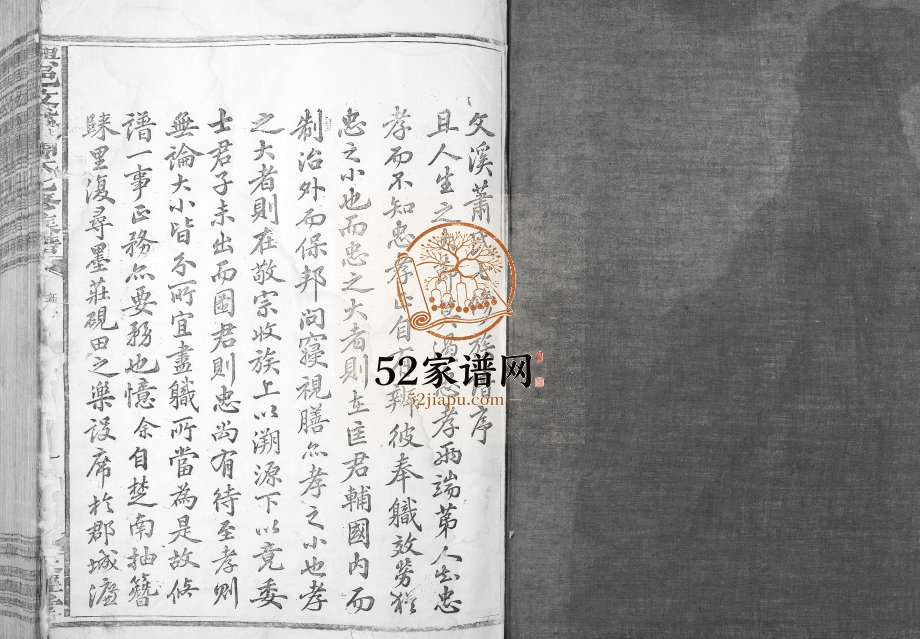 文溪蕭氏
族
序
且人生之大節
忠孝兩端第人知忠
孝而不知忠孝
自有
辨彼奉職效勞猶
忠之小也而忠之大者則在匡君輔國內而
制治外而保邦問寢視膳亦孝之小也孝
之大者則在敬宗收族上以溯源下以竟委
士君子未出而圖君則忠尚有待至孝則
無論大小皆分所宜盡職所當為是故修
譜一事正務亦要務也憶余自楚南抽簪
歸里復尋墨莊硯田之樂設席於郡城濂
52家谱网
52jiapu.com